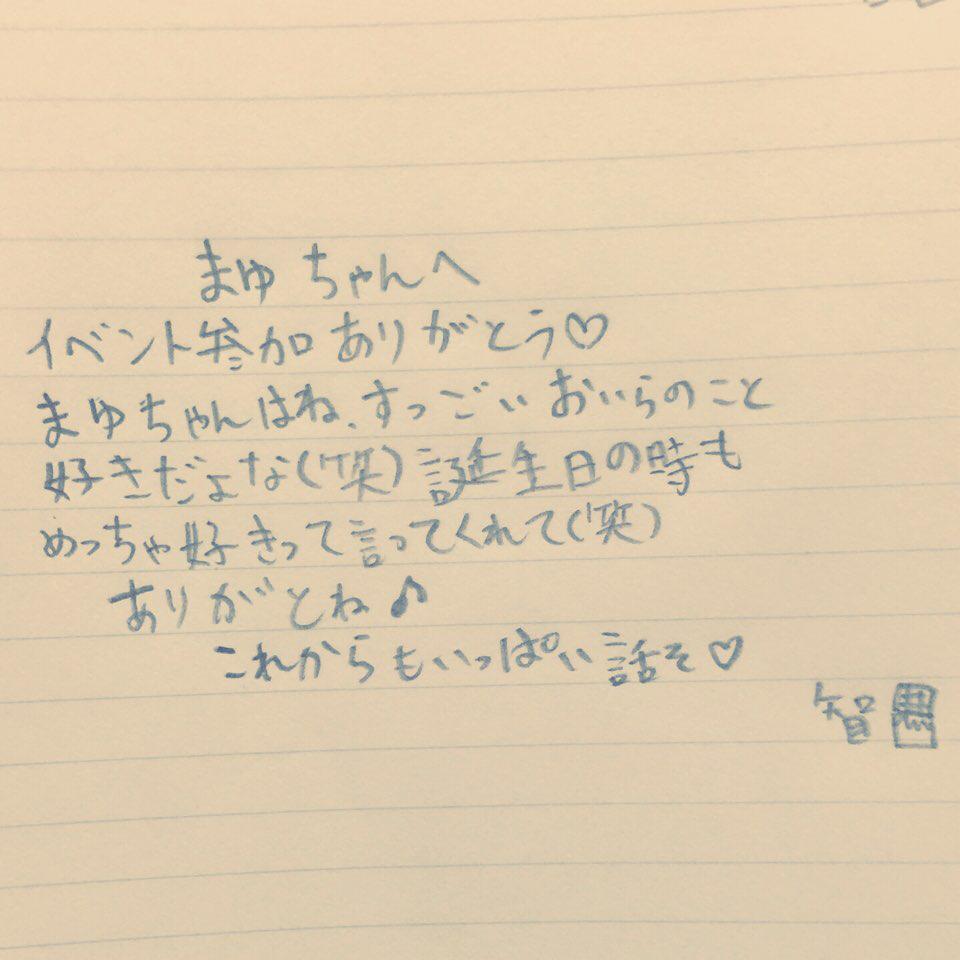 まゆちゃんへ
イベント参加ありがとう♡
まゆちゃんはね、すっごいおいらのこと
好きだよな(笑)誕生日の時も
めっちゃ好きって言ってくれて(笑)
ありがとね♪
これからもいっぱい話そ♡
智